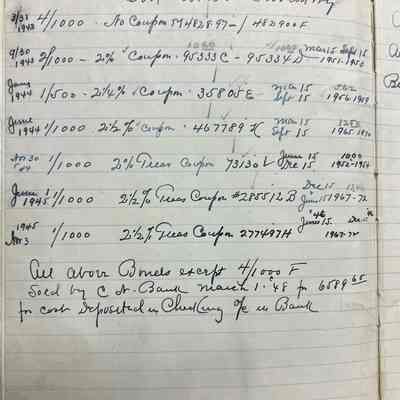 3/31 1943 4/1000 - No Coupon 48D900F
9/30 1943 2/1000 - 2% Coupon - 95333C - 95334D Mar 15 Sept 15 1951-1950
June 1944 1/500 - 2 1/4% Coupon - 35805E Mar 15 Sept 15 1956-1959
June 1944 1/1000 2 1/2% Coupon - 467789K Mar 15 Sept 15 1965-1970
Nov 30 1/1000 2% Treas Coupon 73130L June 15 Dec 15 1952-1954
June 1 1945 1/1000 2 1/2% Treas Coupon #285512B Dec 15 June 15 1967-72
1945 Nov 3 1/1000 2 1/2% Treas Coupon 277497H June 15 Dec 15 1967-72
All above Bonds except 4/1000 F
Sold by C N. Bank March 1-'48 for 6589.65
for cash Deposited in Checking a/c in Bank